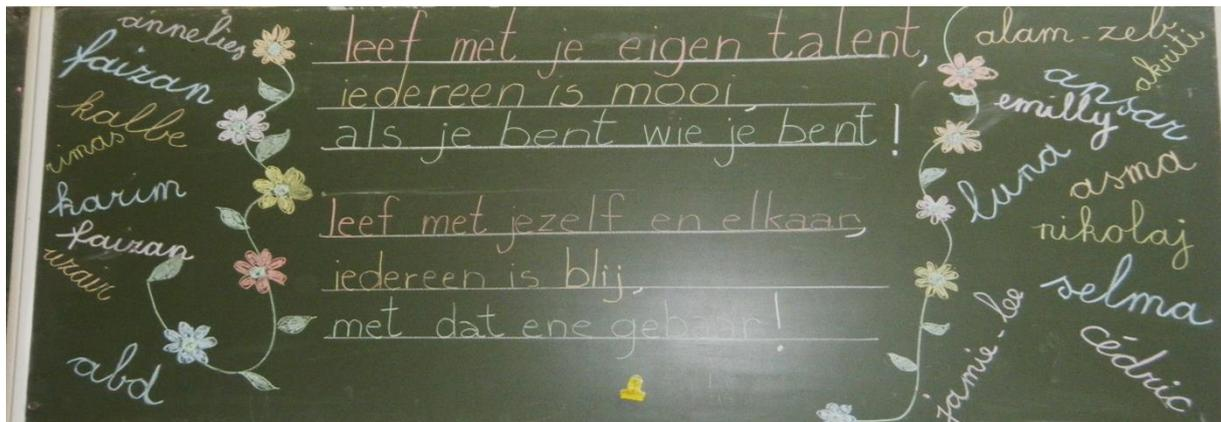 annelies
faizan
kalbe
rimas
karim
faizan
uzair
abd
leef met je eigen talent,
iedereen is mooi,
als je bent wie je bent!
leef met jezelf en elkaar,
iedereen is blij,
met dat ene gebaar!
alam-zeb
akriti
ansar
emilly
luna
asma
nikolaj
selma
jamie-lee
cédric